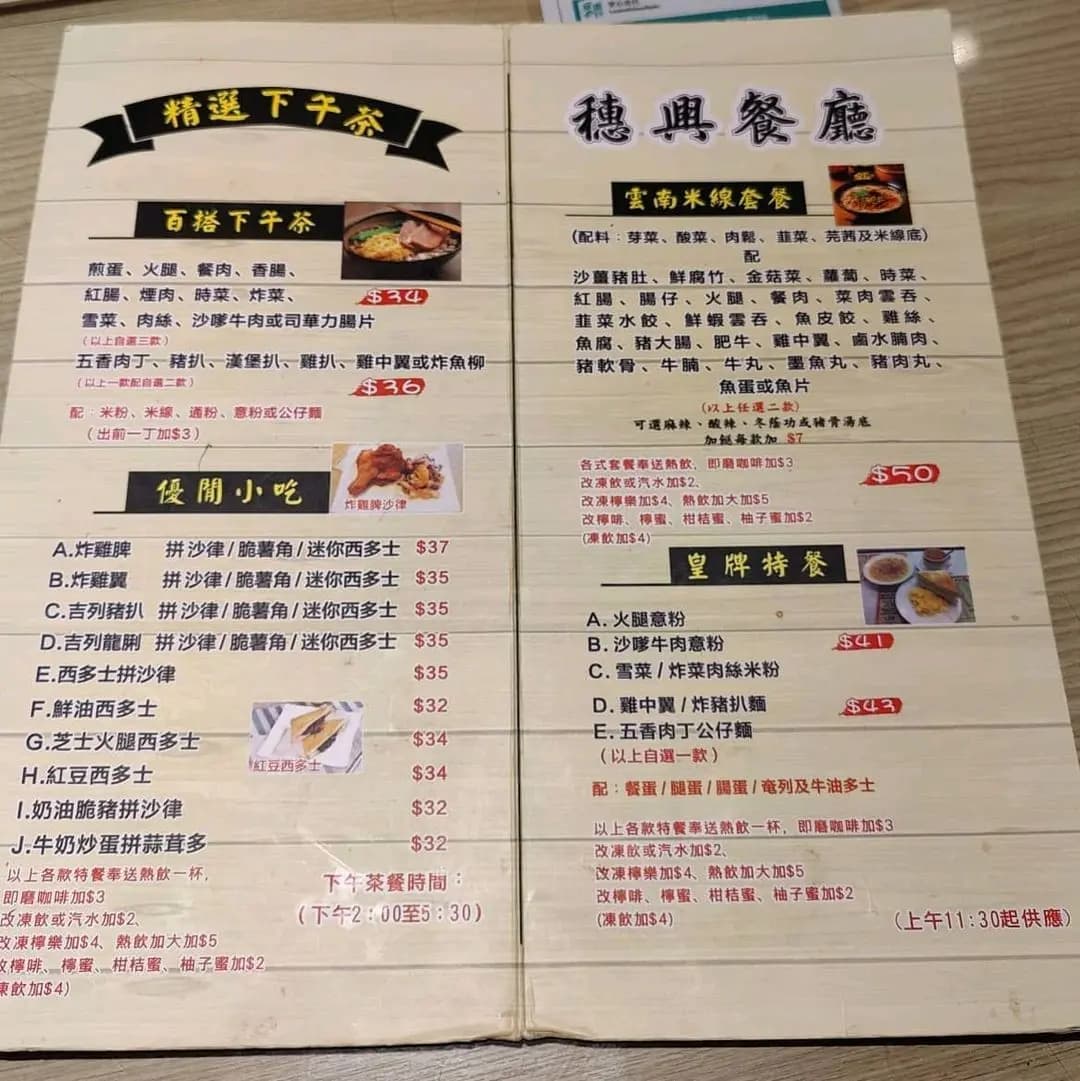 精選下午茶
百搭下午茶
煎蛋、火腿、餐肉、香腸、
紅腸、煙肉、時菜、炸菜、
$34
雪菜、肉絲、沙嗲牛肉或司華力腸片
(以上自選三款)
五香肉丁、豬扒、漢堡扒、雞扒、雞中翼或炸魚柳
(以上一款配自選二款)
$36
配：米粉、米線、通粉、意粉或公仔麵
(出前一丁加$3)
優閒小吃
炸雞脾沙律
A.炸雞脾 拼沙律/脆薯角/迷你西多士 $37
B.炸雞翼 拼沙律/脆薯角/迷你西多士 $35
C.吉列豬扒 拼沙律/脆薯角/迷你西多士 $35
D.吉列龍脷 拼沙律/脆薯角/迷你西多士 $35
E.西多士拼沙律 $35
F.鮮油西多士 $32
G.芝士火腿西多士 $34
紅豆西多士
H.紅豆西多士 $34
I.奶油脆豬拼沙律 $32
J.牛奶炒蛋拼蒜茸多 $32
以上各款特餐奉送熱飲一杯，
即磨咖啡加$3
改凍飲或汽水加$2、
改凍檸樂加$4、熱飲加大加$5
改檸啡、檸蜜、柑桔蜜、柚子蜜加$2
凍飲加$4)
下午茶餐時間：
(下午2：00至5：30)
穗興餐廳
雲南米線套餐
(配料：芽菜、酸菜、肉鬆、韮菜、芫茜及米線底)
配
沙薑豬肚、鮮腐竹、金菇菜、蘿蔔、時菜、
紅腸、腸仔、火腿、餐肉、菜肉雲吞、
韮菜水餃、鮮蝦雲吞、魚皮餃、雞絲、
魚腐、豬大腸、肥牛、雞中翼、鹵水腩肉、
豬軟骨、牛腩、牛丸、墨魚丸、豬肉丸、
魚蛋或魚片
(以上任選二款)
可選麻辣、酸辣、冬蔭功或豬骨湯底
加餸每款加 $7
各式套餐奉送熱飲，即磨咖啡加$3
改凍飲或汽水加$2、
$50
改凍檸樂加$4、熱飲加大加$5
改檸啡、檸蜜、柑桔蜜、柚子蜜加$2
(凍飲加$4)
皇牌特餐
A.火腿意粉
B.沙嗲牛肉意粉 $41
C.雪菜/炸菜肉絲米粉
D.雞中翼/炸豬扒麵 $43
E.五香肉丁公仔麵
(以上自選一款)
配：餐蛋/腿蛋/腸蛋/奄列及牛油多士
以上各款特餐奉送熱飲一杯，即磨咖啡加$3
改凍飲或汽水加$2、
改凍檸樂加$4、熱飲加大加$5
改檸啡、檸蜜、柑桔蜜、柚子蜜加$2
(凍飲加$4)
(上午11:30起供應)